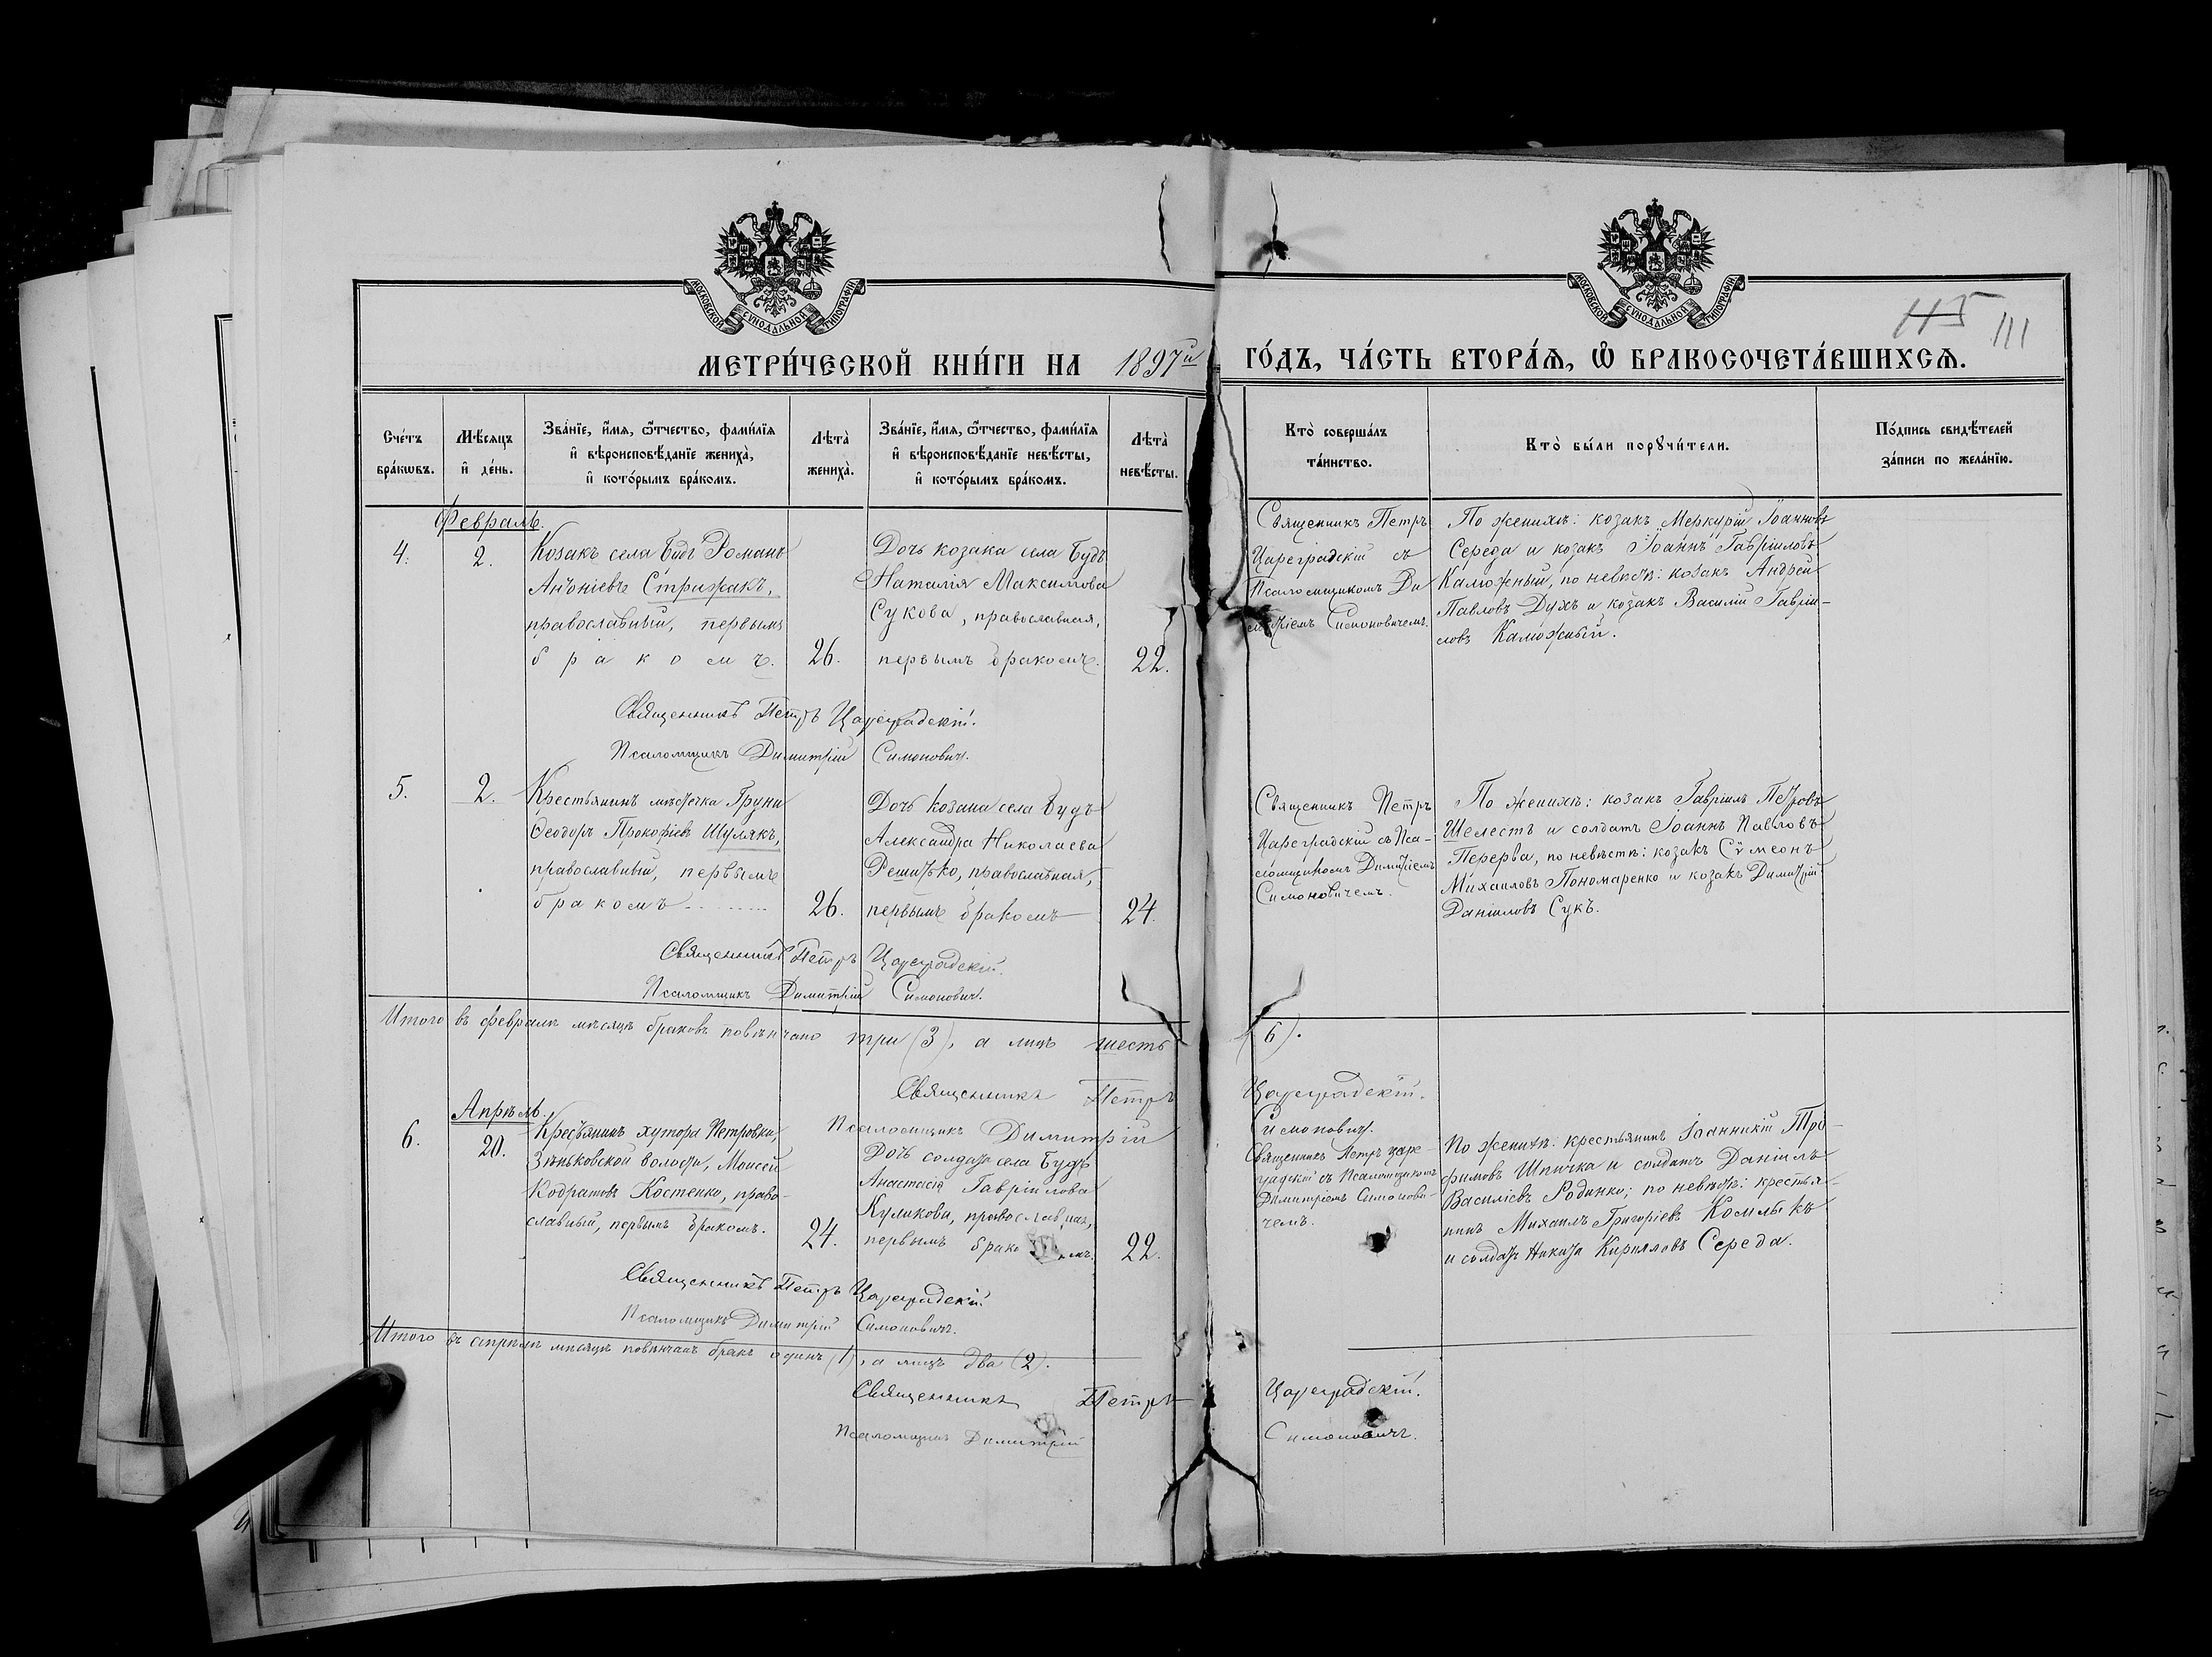 МОСКОВСКОЙ СУНОДАЛЬНОЙ ТИПОГРАФІИ
МОСКОВСКОЙ СУНОДАЛЬНОЙ ТИПОГРАФІИ
115 111
МЕТРИ́ЧЕСКОЙ КНИ́ГИ НА 1897й ГО́ДЪ, ЧА́СТЬ ВТОРА́Ѧ, Ѽ БРАКОСОЧЕТА́ВШИХСѦ.
Сче́тъ бра́кѡвъ.
Мѣ́сяцъ и҆ де́нь.
Зва́нїе, и҆́мѧ, ѻ҆́тчество, фами́лїѧ
и҆ вѣроисповѣ́данїе жениха̀,
и҆ кото́рымъ бра́комъ.
Лѣта̀ жениха̀.
Зва́нїе, и҆́мѧ, ѻ҆́тчество, фами́лїѧ
и҆ вѣроисповѣ́данїе невѣ́сты,
и҆ кото́рымъ бра́комъ.
Лѣта̀ невѣ́сты.
Кто̀ соверша́лъ
та́инство.
Кто̀ бы́ли порꙋчи́тели.
По́дпись свидѣ́телей
за́писи по жела́нїю.
Февраль.
4.
2.
Козакъ села Будъ Романъ
Антоніевъ Стрижакъ,
православный, первымъ
бракомъ.
26.
Дочь козака села Будъ
Наталія Максимова
Сукова, православная,
первымъ бракомъ.
22.
Священникъ Петръ
Цареградскій съ
Псаломщикомъ Ди
митріемъ Симоновичемъ.
По женихѣ: козакъ Меркурій Іоанновъ
Середа и козакъ Іоаннъ Гавріиловъ
Калюжный, по невѣстѣ: козакъ Андрей
Павловъ Духъ и козакъ Василій Гавріи-
ловъ Калюжный.
Священникъ Петръ Цареградскій.
Псаломщикъ Димитрій Симоновичъ.
5.
2.
Крестьянинъ мѣстечка Груни
Ѳеодоръ Прокофіевъ Шулякъ,
православный, первымъ
бракомъ
26.
Дочь козака села Будъ
Александра Николаева
Решитько, православная,
первымъ бракомъ
24.
Священникъ Петръ
Цареградскій съ Пса-
ломщикомъ Димитріемъ
Симоновичемъ.
По женихѣ: козакъ Гавріилъ Петровъ
Шелестъ и солдатъ Іоаннъ Павловъ
Перерва, по невѣстѣ: козакъ Сѵмеонъ
Михаиловъ Пономаренко и козакъ Димитрій
Даніиловъ Сукъ.
Священникъ Петръ Цареградскій.
Псаломщикъ Димитрій Симоновичъ.
Итого въ февралѣ мѣсяцѣ браковъ повѣнчано три (3), а лицъ шесть (6).
Священникъ Петръ Цареградскій.
Псаломщикъ Димитрій Симоновичъ.
Апрѣль.
6.
20.
Крестьянинъ хутора Петровки,
Зѣньковской волости, Моисей
Кодратовъ Костенко, право-
славный, первымъ бракомъ.
24.
Дочь солдата села Будъ
Анастасія Гавріилова
Куликова, православная,
первымъ бракомъ.
22.
Священникъ Петръ Царе-
градскій съ Псаломщикомъ
Димитріемъ Симонови-
чемъ.
По женихѣ: крестьянинъ Іоанникій Тро-
фимовъ Шпичка и солдатъ Даніилъ
Василіевъ Родинко; по невѣстѣ: крестья-
нинъ Михаилъ Григоріевъ Комлыкъ
и солдатъ Никита Кирилловъ Середа.
Священникъ Петръ Цареградскій
Псаломщикъ Димитрій Симоновичъ.
Итого въ апрѣлѣ мѣсяцѣ повѣнчанъ бракъ одинъ (1), а лицъ два (2).
Священникъ Петръ Цареградскій.
Псаломщикъ Димитрій Симоновичъ.